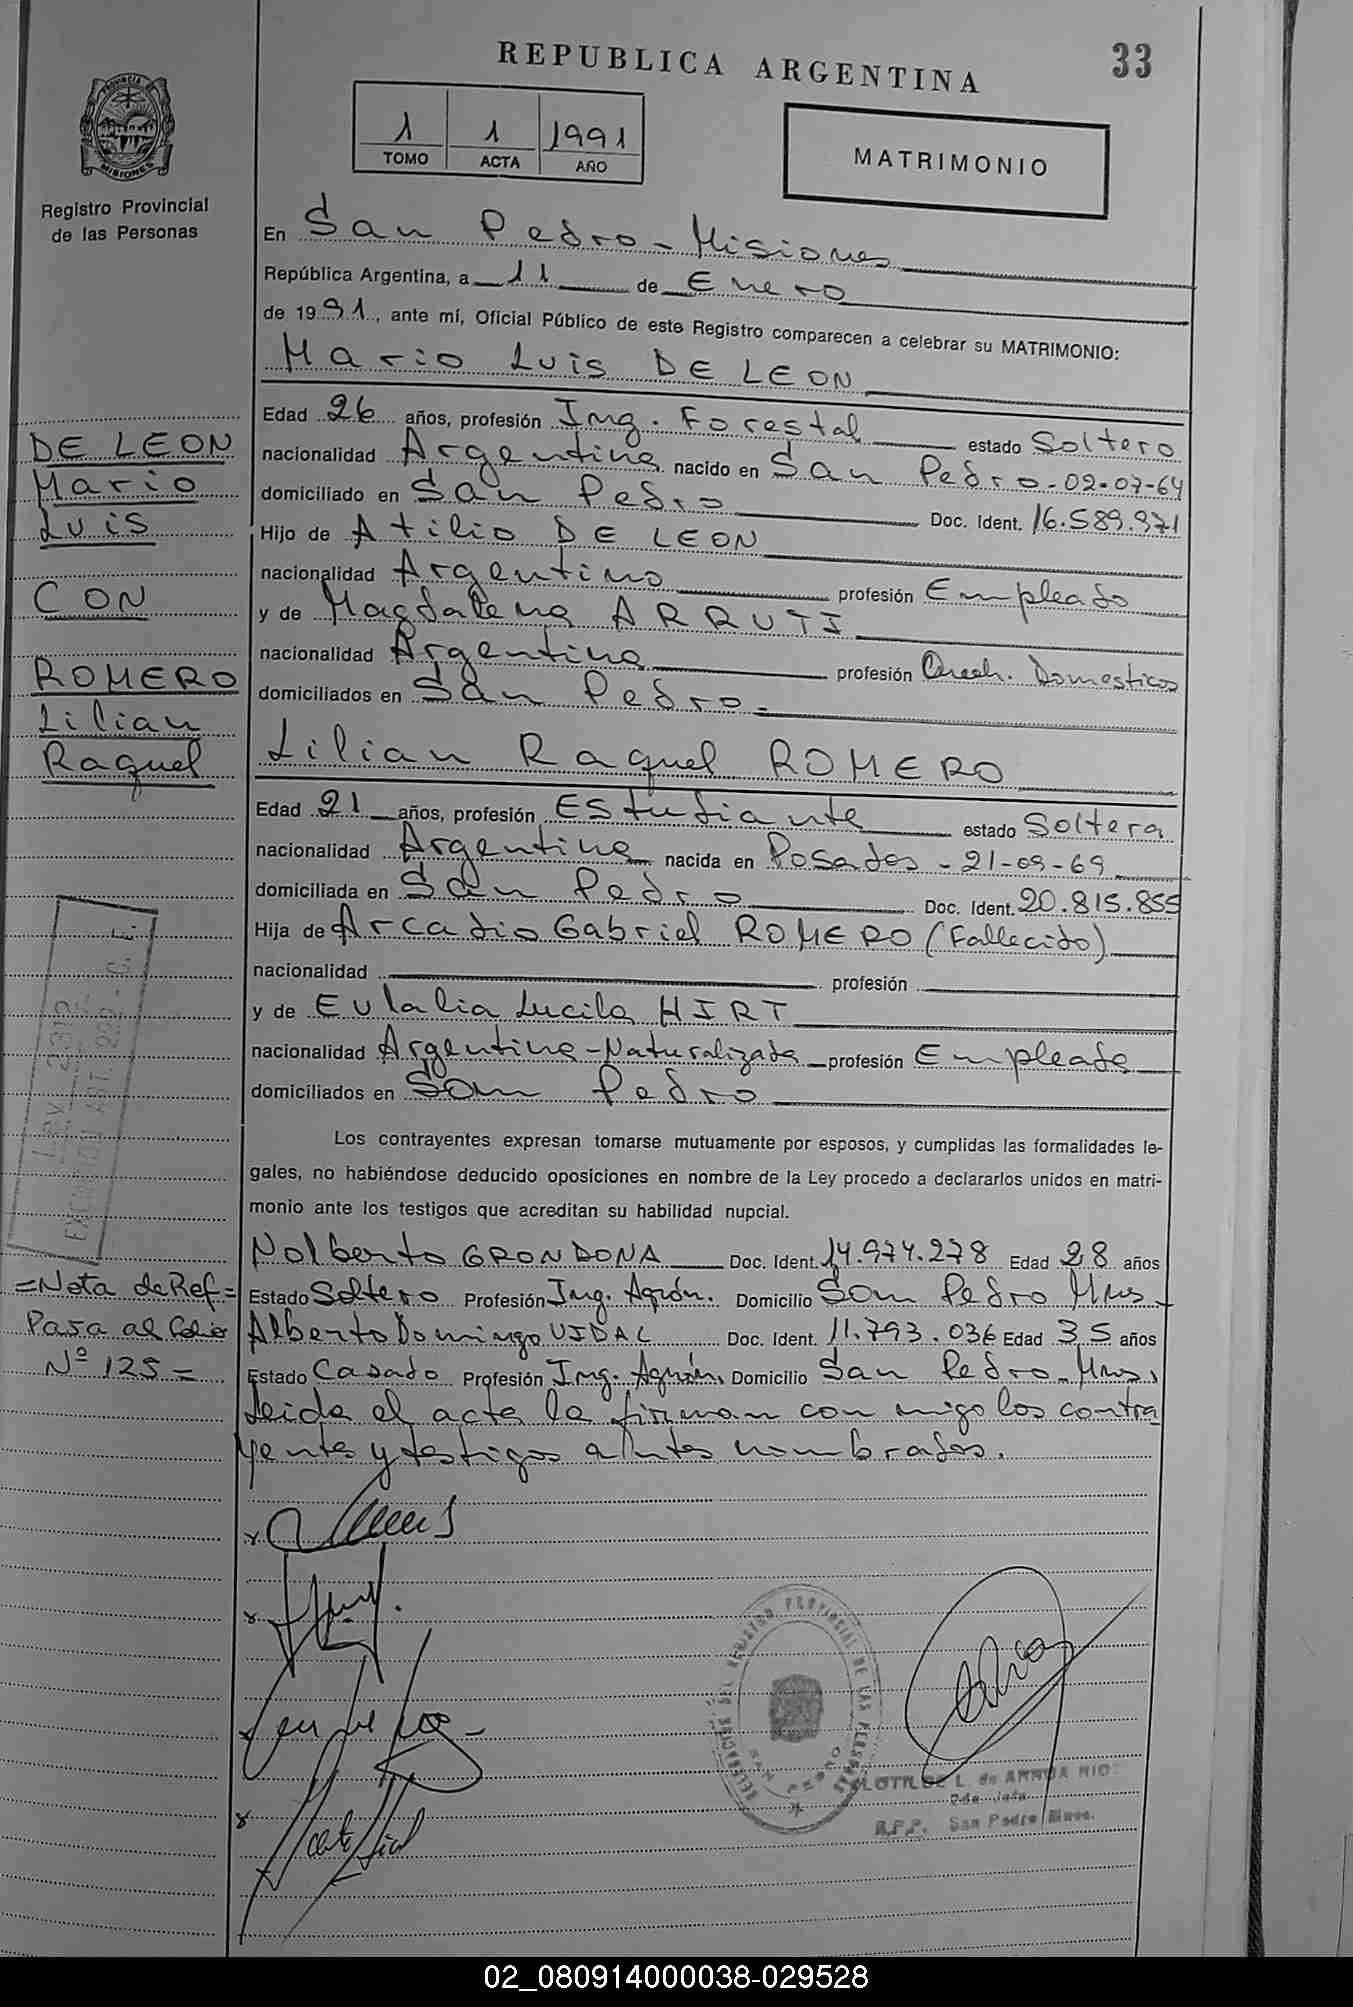 REPUBLICA ARGENTINA
33
PROVINCIA DE MISIONES
Registro Provincial
de las Personas
1 1 1991
TOMO ACTA AÑO
MATRIMONIO
En San Pedro - Misiones
República Argentina, a 11 de Enero
de 1991, ante mí, Oficial Público de este Registro comparecen a celebrar su MATRIMONIO:
Mario Luis DE LEON
Edad 26 años, profesión Ing. Forestal estado Soltero
nacionalidad Argentina nacido en San Pedro - 02-07-64
domiciliado en San Pedro Doc. Ident. 16.589.971
Hijo de Atilio DE LEON
nacionalidad Argentino profesión Empleado
y de Magdalena ARRUTI
nacionalidad Argentina profesión Domesticos
domiciliados en San Pedro -
Lilian Raquel ROMERO
Edad 21 años, profesión Estudiante estado Soltera
nacionalidad Argentina nacida en Posadas - 21-09-69
domiciliada en San Pedro Doc. Ident. 20.815.855
Hija de Arcadio Gabriel ROMERO (Fallecido)
nacionalidad profesión
y de Eulalia Lucila HIRT
nacionalidad Argentina - Naturalizada profesión Empleada
domiciliados en San Pedro
Los contrayentes expresan tomarse mutuamente por esposos, y cumplidas las formalidades le-
gales, no habiéndose deducido oposiciones en nombre de la Ley procedo a declararlos unidos en matri-
monio ante los testigos que acreditan su habilidad nupcial.
Nolberto GRONDONA Doc. Ident. 14.974.278 Edad 28 años
Estado Soltero Profesión Ing. Agrón. Domicilio San Pedro Mnes -
Alberto Domingo VIDAL Doc. Ident. 11.793.036 Edad 35 años
Estado Casado Profesión Ing. Agrón. Domicilio San Pedro - Mnes.
Leida el acta la firman con migo los contra
yentes y testigos antes nombrados.
DE LEON
Mario
Luis
CON
ROMERO
Lilian
Raquel
= Nota de Ref =
Pasa al Folio
Nº 125 =
DELEGACION DEL REGISTRO PROVINCIAL DE LAS PERSONAS
SAN PEDRO
R.P.P. San Pedro Mnes.
02_080914000038-029528